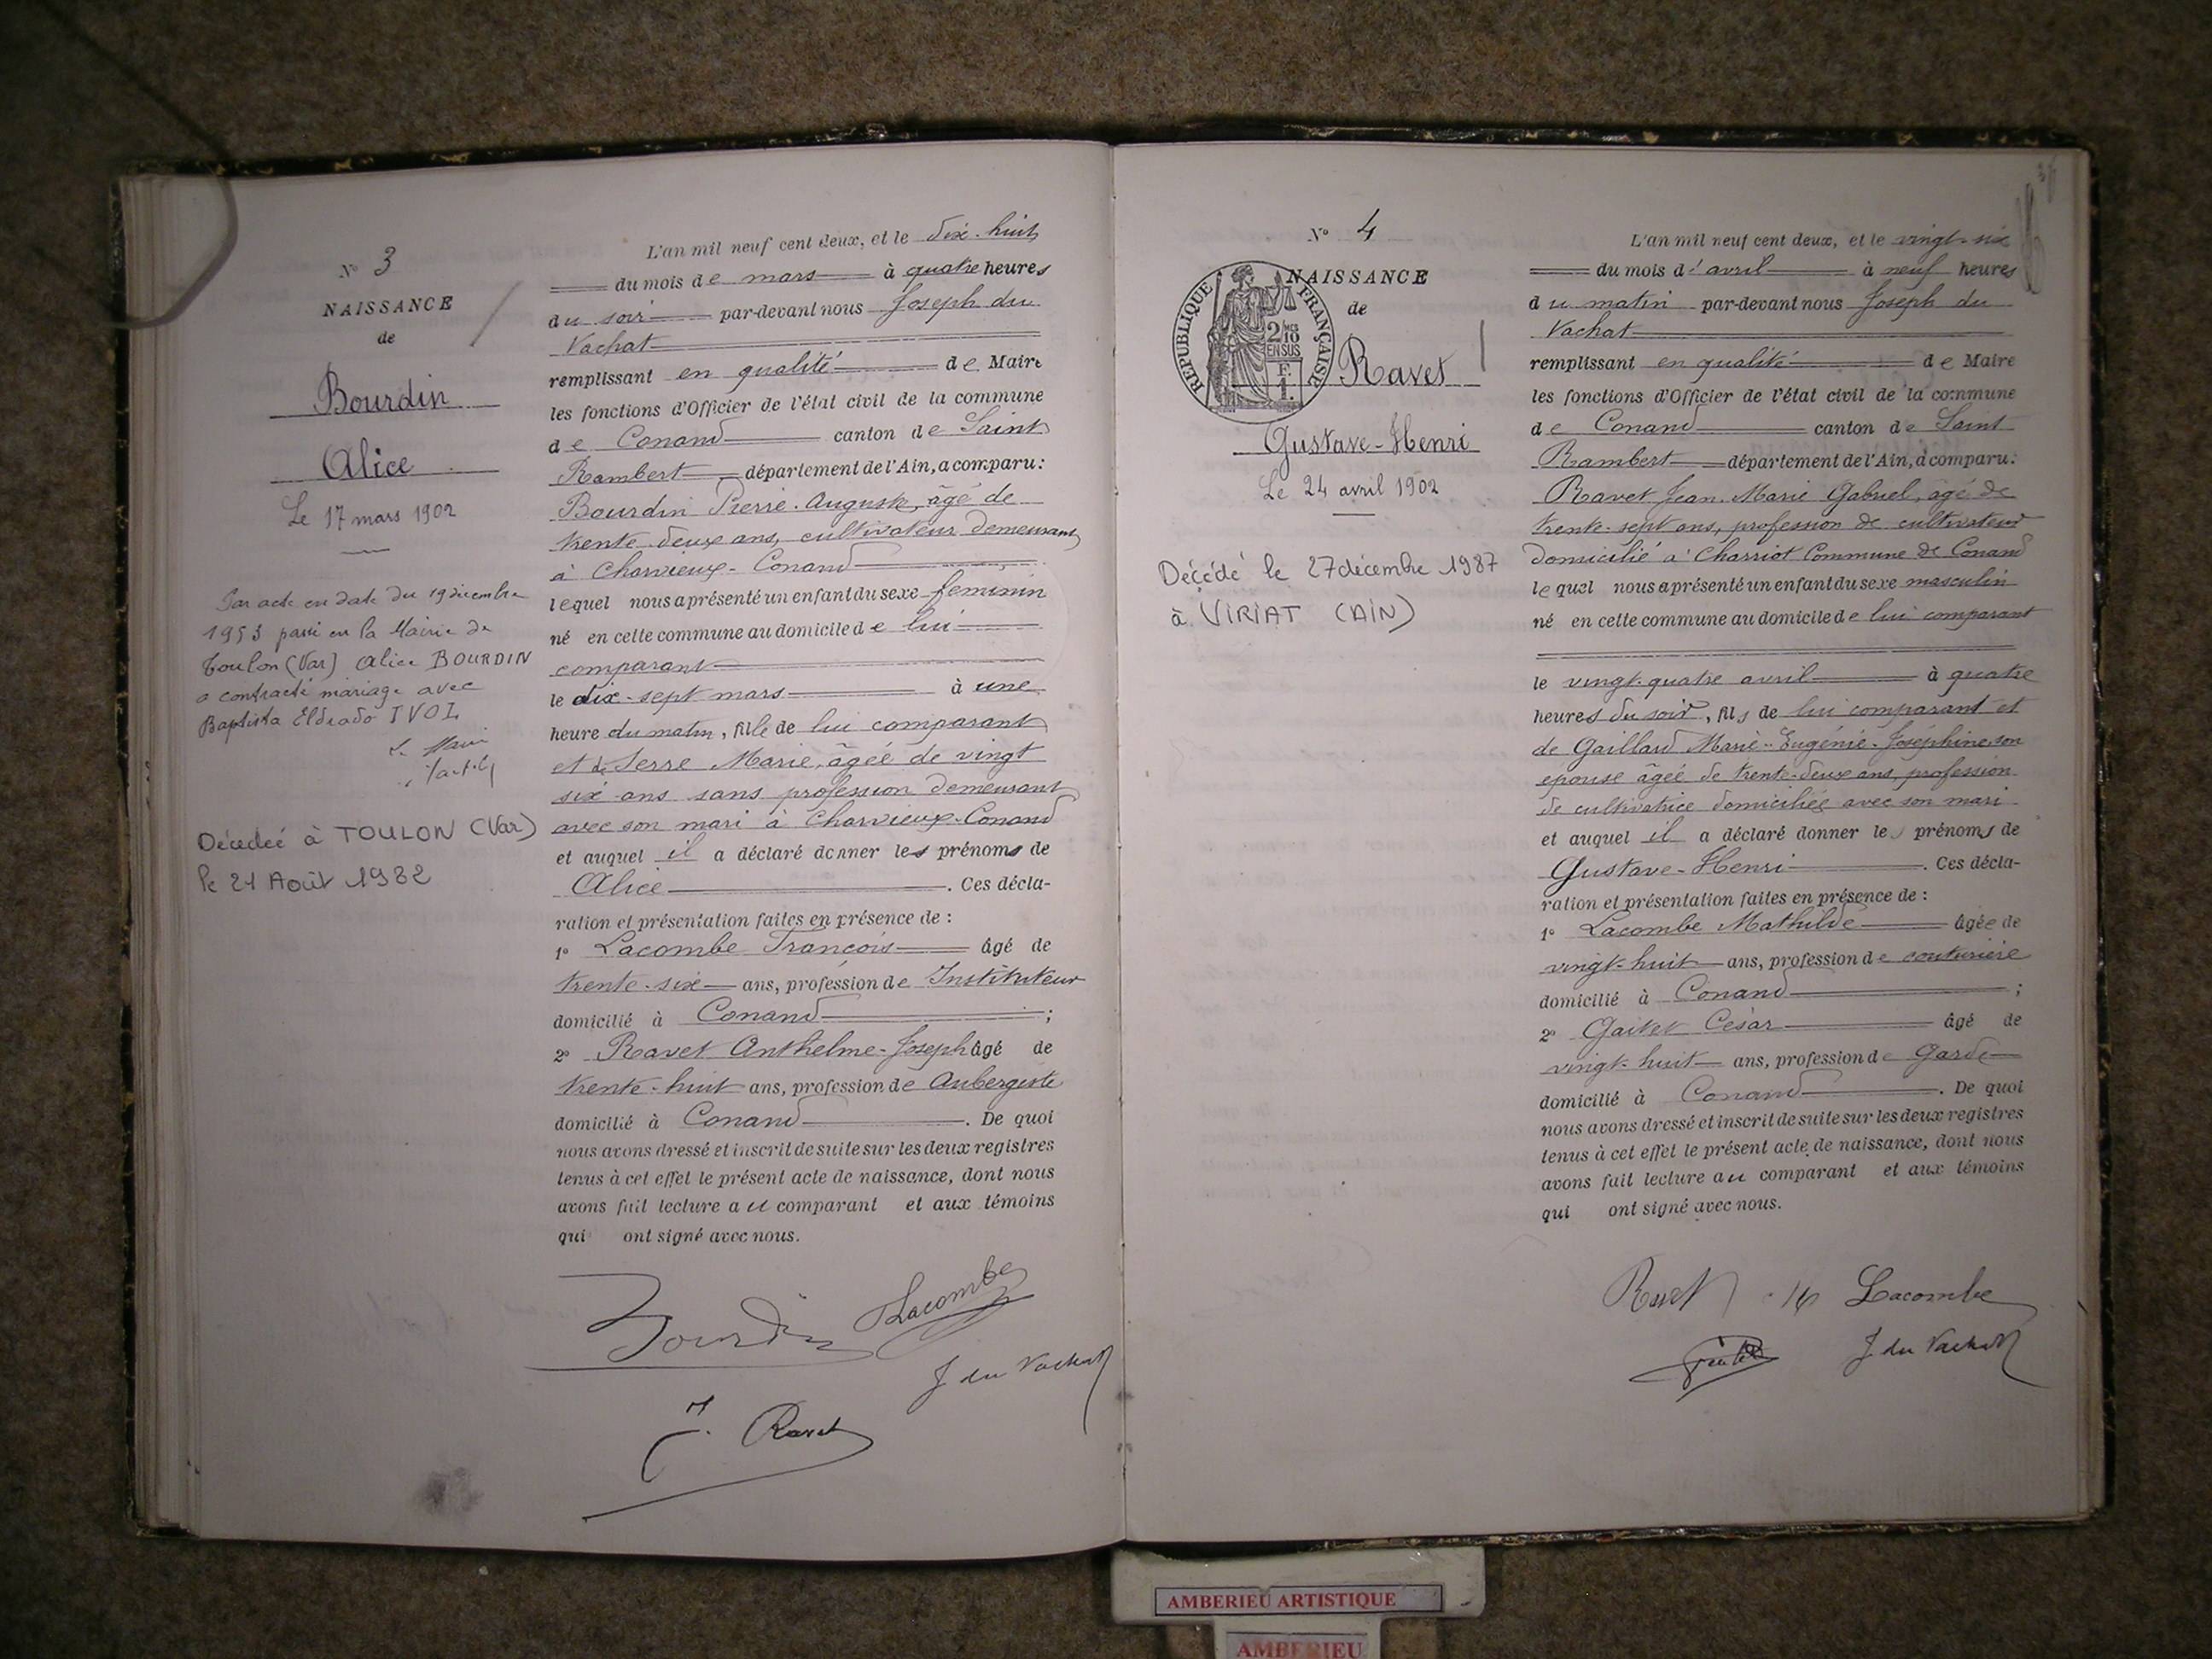 N° 3
NAISSANCE
de
Bourdin
Alice
Le 17 mars 1902
Par acte en date du 19 décembre
1953 passé en la Mairie de
Toulon (Var) Alice BOURDIN
a contracté mariage avec
Baptista Eldrado IVOL
Décédée à TOULON (Var)
le 21 Août 1982
L'an mil neuf cent deux, et le dix-huit
du mois de mars à quatre heures
du soir par-devant nous Joseph du
Vachat
remplissant en qualité de Maire
les fonctions d'Officier de l'état civil de la commune
de Conand canton de Saint
Rambert département de l'Ain, a comparu :
Bourdin Pierre-Auguste, âgé de
trente-deux ans, cultivateur demeurant
à Charvieux-Conand
lequel nous a présenté un enfant du sexe féminin
né en cette commune au domicile de lui
comparant
le dix-sept mars à une
heure du matin, fille de lui comparant
et de Serre Marie, âgée de vingt
six ans sans profession demeurant
avec son mari à Charvieux-Conand
et auquel il a déclaré donner les prénoms de
Alice. Ces décla-
ration et présentation faites en présence de :
1° Lacombe François âgé de
trente-six ans, profession de Instituteur
domicilié à Conand ;
2° Ravet Anthelme-Joseph âgé de
trente-huit ans, profession de Aubergiste
domicilié à Conand. De quoi
nous avons dressé et inscrit de suite sur les deux registres
tenus à cet effet le présent acte de naissance, dont nous
avons fait lecture au comparant et aux témoins
qui ont signé avec nous.
Bourdin Lacombe
J du Vachat
J. Ravet
N° 4
NAISSANCE
de
RÉPUBLIQUE FRANÇAISE
2/10 EN SUS
F. 1.
Ravet
Gustave-Henri
Le 24 avril 1902
Décédé le 27 décembre 1987
à VIRIAT (AIN)
L'an mil neuf cent deux, et le vingt-six
du mois d'avril à neuf heures
du matin par-devant nous Joseph du
Vachat
remplissant en qualité de Maire
les fonctions d'Officier de l'état civil de la commune
de Conand canton de Saint
Rambert département de l'Ain, a comparu :
Ravet Jean-Marie Gabriel, âgé de
trente-sept ans, profession de cultivateur
domicilié à Charriot Commune de Conand
lequel nous a présenté un enfant du sexe masculin
né en cette commune au domicile de lui comparant
le vingt-quatre avril à quatre
heures du soir, fils de lui comparant et
de Gaillard Marie-Eugénie-Joséphine son
épouse âgée de trente-deux ans, profession
de cultivatrice domiciliée avec son mari
et auquel il a déclaré donner les prénoms de
Gustave-Henri. Ces décla-
ration et présentation faites en présence de :
1° Lacombe Mathilde âgée de
vingt-huit ans, profession de couturière
domicilié à Conand ;
2° Gaitet César âgé de
vingt-huit ans, profession de Garde
domicilié à Conand. De quoi
nous avons dressé et inscrit de suite sur les deux registres
tenus à cet effet le présent acte de naissance, dont nous
avons fait lecture au comparant et aux témoins
qui ont signé avec nous.
Ravet Lacombe
J du Vachat
AMBERIEU ARTISTIQUE
AMBERIEU